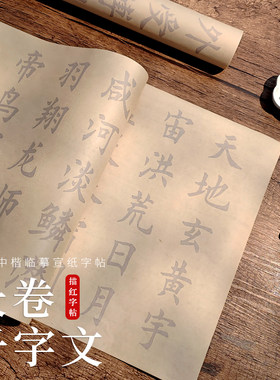 外受
天地玄黄宇
宙洪荒日月
咸河淡鳞
羽翔龙师
帝鸟
中楷临摹宣纸字帖
卷
描红字帖
字文